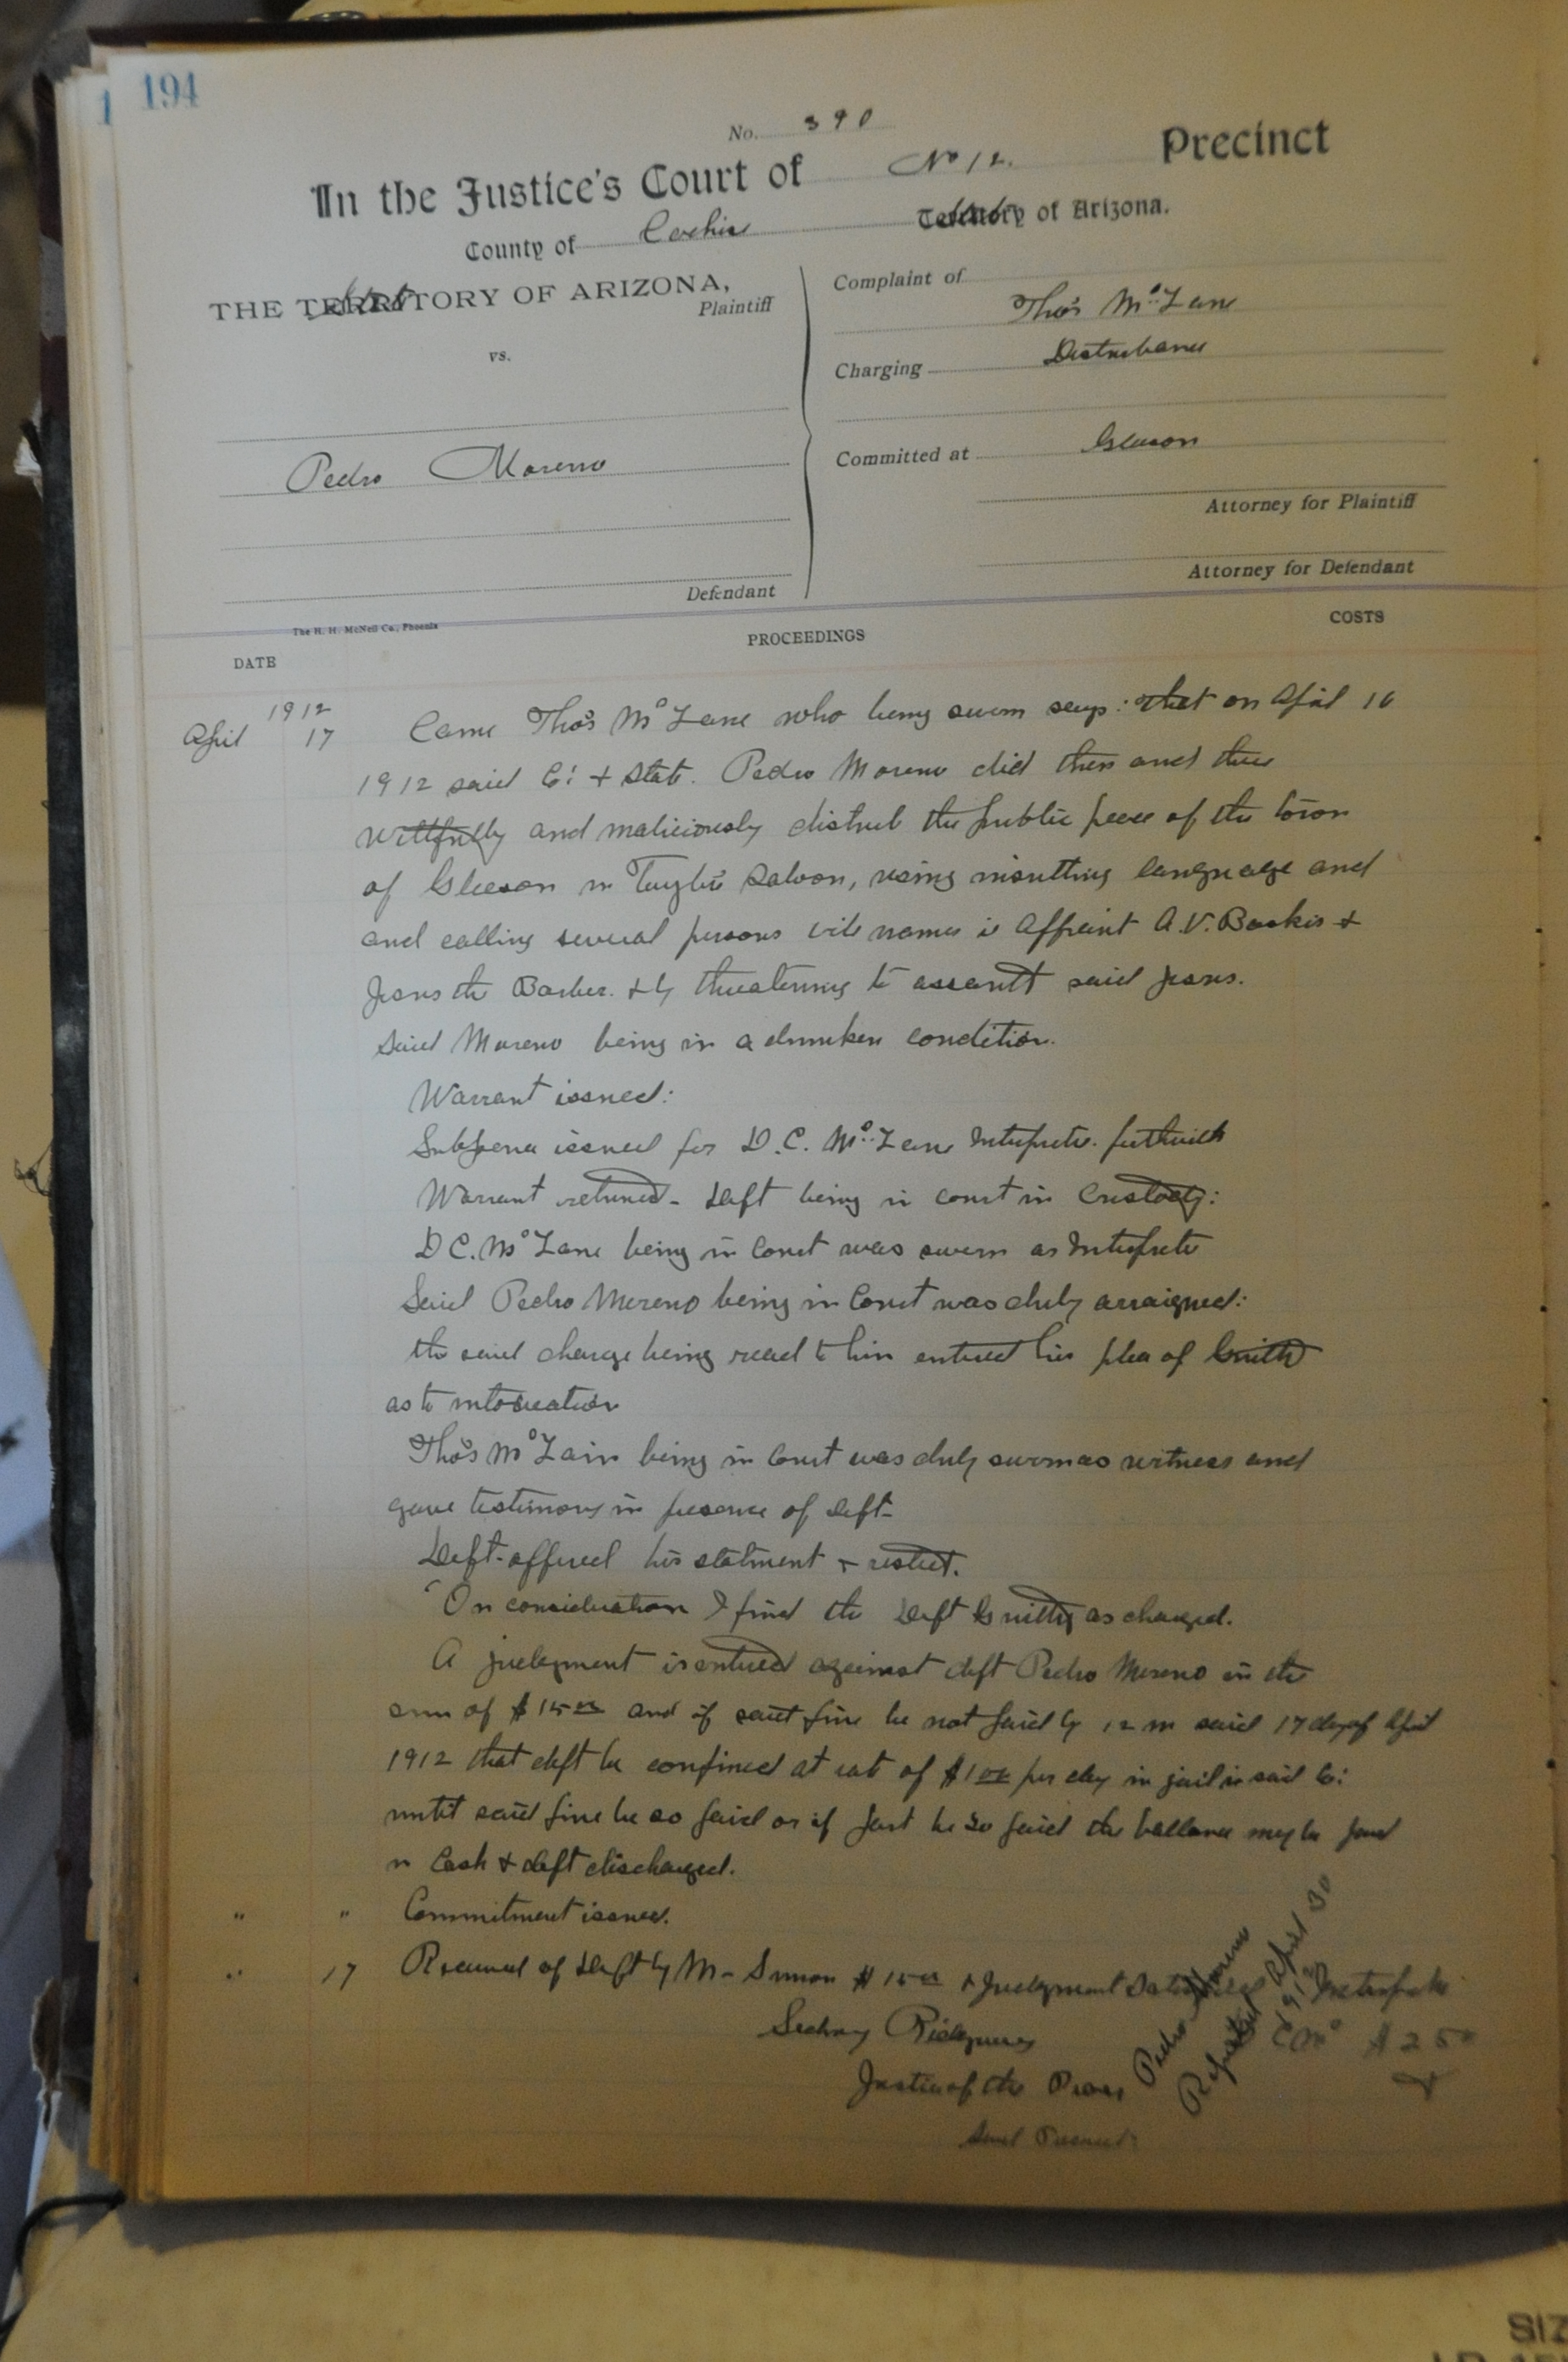 194
No. 390
In the Justice's Court of No 12. Precinct
County of Cochise Territory of Arizona.
State
THE TERRITORY OF ARIZONA,
State
Plaintiff
vs.
Pedro Moreno
Defendant
Complaint of
Thos McLane
Charging Disturbance
Committed at Gleeson
Attorney for Plaintiff
Attorney for Defendant
The H. H. McNeil Co., Phoenix
DATE PROCEEDINGS COSTS
1912
April 17 Came Thos McLane who being sworn says: that on April 16
1912 said Co: & State. Pedro Moreno did then and there
willfully and maliciously disturb the public peace of the town
of Gleeson in Saloon, using insulting language and
and calling several persons vile names ie Affiant A.V. &
Jesus the Barber. & by threatening to assault said Jesus.
Said Moreno being in a drunken condition.
Warrant issued:
Subpena issued for D.C. McLane Interpreter. forthwith
Warrant returned - Deft being in court in Custody:
D C. McLane being in Court was sworn as Interpreter
Said Pedro Moreno being in Court was duly arraigned:
the said charge being read to him entered his plea of Guilty
as to intoxication
Thos McLain being in Court was duly sworn as witness and
gave testimony in presence of Deft-
Deft- offered his statment & rested.
On consideration I find the Deft Guilty as charged.
A judgment is entered against deft Pedro Moreno in the
sum of $15 00 and if said fine be not paid by 12 m said 17 day of April
1912 that deft be confined at rate of $1 00 per day in jail in said Co:
until said fine be so paid or if part be so paid the ballance may be paid
in Cash & deft discharged.
" " Commitment issued.
" 17 Received of Deft by M- $15 00 & Judgment Satisfied
Interpreter
Justice of the Peace
Said Precinct
$2 50
Pedro Moreno
April 30
1912